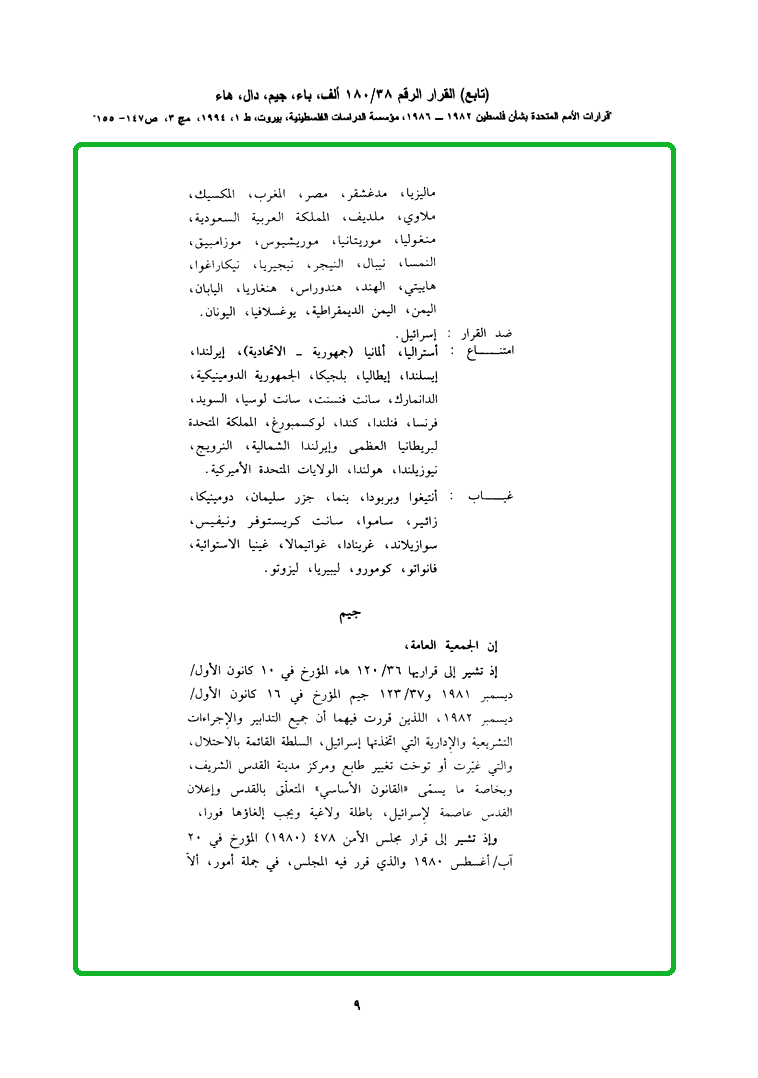 (تابع) القرار الرقم ١٨٠/٣٨ ألف، باء، جيم، دال، هاء
"قرارات الأمم المتحدة بشأن فلسطين ١٩٨٢ – ١٩٨٦، مؤسسة الدراسات الفلسطينية، بيروت، ط ١، ١٩٩٤، مج ٣، ص١٤٧- ١٥٥"
ماليزيا، مدغشقر، مصر، المغرب، المكسيك،
ملاوي، ملديف، المملكة العربية السعودية،
منغوليا، موريتانيا، موريشيوس، موزامبيق،
النمسا، نيبال، النيجر، نيجيريا، نيكاراغوا،
هاييتي، الهند، هندوراس، هنغاريا، اليابان،
اليمن، اليمن الديمقراطية، يوغسلافيا، اليونان.
ضد القرار : إسرائيل.
امتنـــــاع : أستراليا، ألمانيا (جمهورية – الاتحادية)، إيرلندا،
إيسلندا، إيطاليا، بلجيكا، الجمهورية الدومينيكية،
الدانمارك، سانت فنسنت، سانت لوسيا، السويد،
فرنسا، فنلندا، كندا، لوكسمبورغ، المملكة المتحدة
لبريطانيا العظمى وإيرلندا الشمالية، النرويج،
نيوزيلندا، هولندا، الولايات المتحدة الأميركية.
غيـــــاب : أنتيغوا وبربودا، بنما، جزر سليمان، دومينيكا،
زائير، ساموا، سانت كريستوفر ونيفيس،
سوازيلاند، غرينادا، غواتيمالا، غينيا الاستوائية،
فانواتو، كومورو، ليبيريا، ليزوتو.
جيم
إن الجمعية العامة،
إذ تشير إلى قراريها ١٢٠/٣٦ هاء المؤرخ في ١٠ كانون الأول/
ديسمبر ١٩٨١ و١٢٣/٣٧ جيم المؤرخ في ١٦ كانون الأول/
ديسمبر ١٩٨٢، اللذين قررت فيهما أن جميع التدابير والإجراءات
التشريعية والإدارية التي اتخذتها إسرائيل، السلطة القائمة بالاحتلال،
والتي غيّرت أو توخت تغيير طابع ومركز مدينة القدس الشريف،
وبخاصة ما يسمّى «القانون الأساسي» المتعلّق بالقدس وإعلان
القدس عاصمة لإسرائيل، باطلة ولاغية ويجب إلغاؤها فورا،
وإذ تشير إلى قرار مجلس الأمن ٤٧٨ (١٩٨٠) المؤرخ في ٢٠
آب/أغسطس ١٩٨٠ والذي قرر فيه المجلس، في جملة أمور، ألاّ
٩